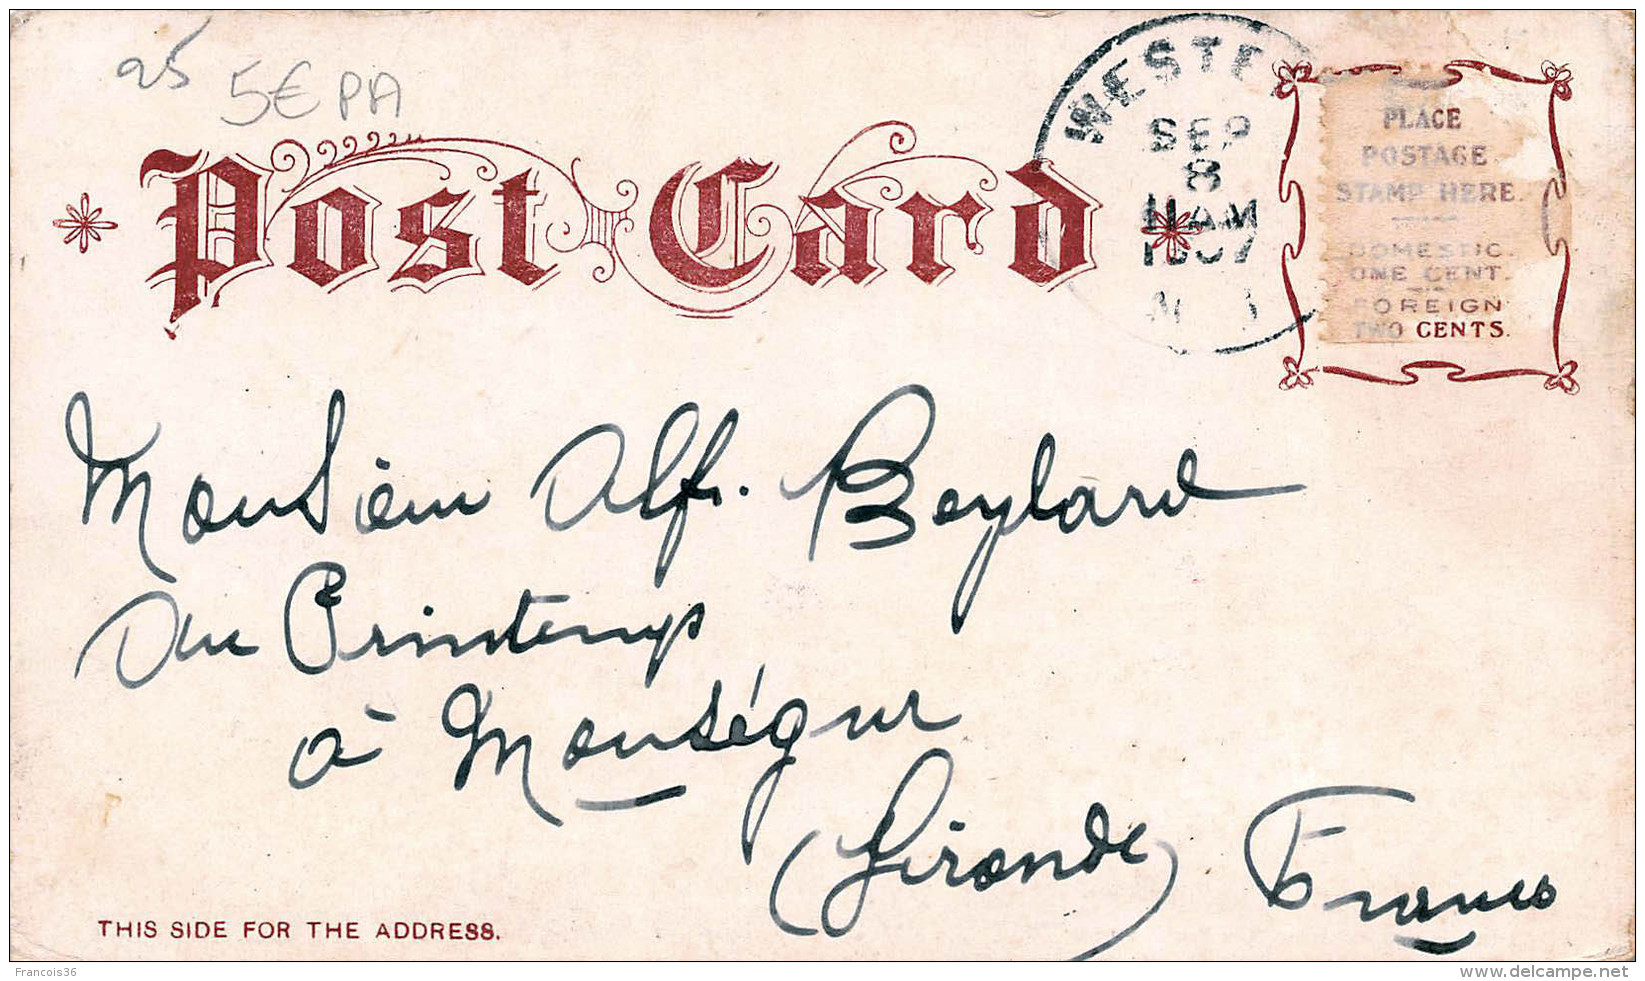 25
5€ PA
WESTE
SEP
8
11 AM
1907
Post Card
PLACE
POSTAGE
STAMP HERE.
DOMESTIC.
ONE CENT.
FOREIGN
TWO CENTS.
Monsieur Alf. Beylard
Au Printemps
à Monségur
(Gironde) France
THIS SIDE FOR THE ADDRESS.
Francois36
www.delcampe.net